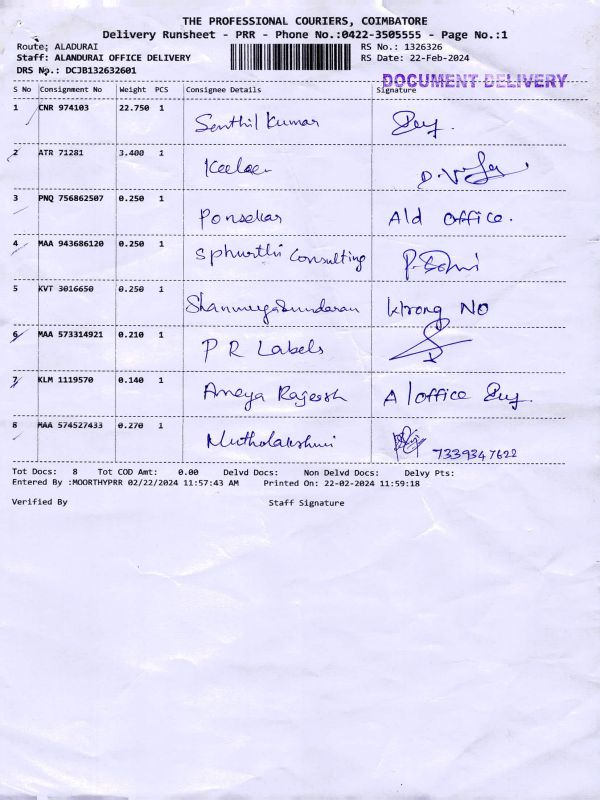 THE PROFESSIONAL COURIERS, COIMBATORE
Delivery Runsheet - PRR - Phone No.:0422-3505555 - Page No.:1
Route: ALADURAI RS No.: 1326326
Staff: ALANDURAI OFFICE DELIVERY RS Date: 22-Feb-2024
DRS No.: DCJB132632601
DOCUMENT DELIVERY
S No Consignment No Weight PCS Consignee Details Signature
1 CNR 974103 22.750 1 Senthil Kumar
2 ATR 71281 3.400 1
3 PNQ 756862507 0.250 1 Ponsekar Ald office.
4 MAA 943686120 0.250 1 Sphurthi Consulting
5 KVT 3016650 0.250 1 Shanmugasundaran Wrong NO
6 MAA 573314921 0.210 1 P R Labels
7 KLM 1119570 0.140 1 Aneya Rajeesh A/office
8 MAA 574527433 0.270 1 Mutholakshmi 7339347622
Tot Docs: 8 Tot COD Amt: 0.00 Delvd Docs: Non Delvd Docs: Delvy Pts:
Entered By :MOORTHYPRR 02/22/2024 11:57:43 AM Printed On: 22-02-2024 11:59:18
Verified By Staff Signature